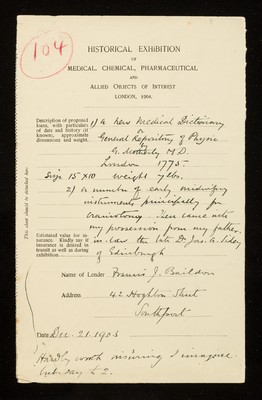 104
HISTORICAL EXHIBITION
OF
MEDICAL, CHEMICAL, PHARMACEUTICAL
AND
ALLIED OBJECTS OF INTEREST
LONDON, 1904.
This sheet should be detached here.
Description of proposed
loans, with particulars
of date and history (if
known), approximate
dimensions and weight.
1) A New Medical Dictionary
or
General Repository of Physic
G. Motherby M.D.
London 1775.
Size 15 x 10 weight 7 lbs.
2) a number of early midwifery
instruments principally for
craniotomy. These came into
my possession from my father
in-law the late Dr. Jas. A. Sidey
of Edinburgh
Estimated value for in-
surance. Kindly say if
insurance is desired in
transit as well as during
exhibition
Name of Lender Francis J. Baildon
Address 42 Hoghton Street
Southport
Date Dec. 21. 1903
Hardly worth insuring I imagine
but say £2.